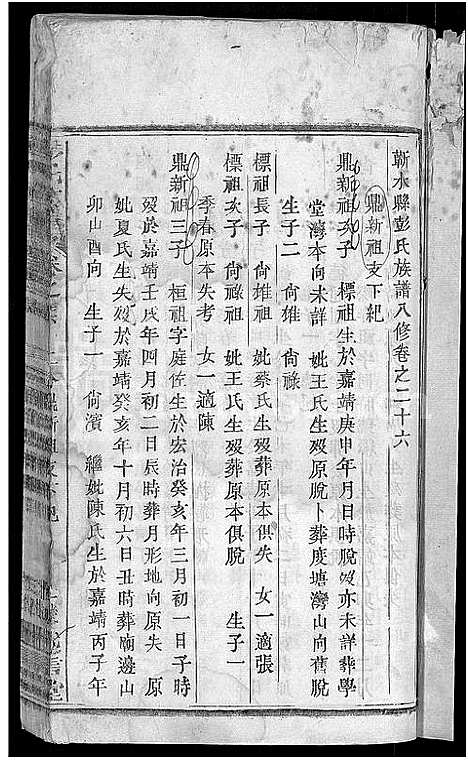 蘄水縣彭氏族譜八修卷之二十六
鼎新祖支下紀
鼎新祖次子　標祖生於嘉靖庚申年月日時脫歿亦未詳葬學
堂灣本向未詳　妣王氏生歿原脫卜葬度塘灣山向舊脫
生子二　尙雄　尙祿
標祖長子　尙雄祖　妣蔡氏生歿葬原本俱失　女一適張
標祖次子　尙祿祖　妣王氏生歿葬原本俱脫　生子一
季春原本失考　女一適陳
鼎新祖三子　桓祖字庭佐生於宏治癸亥年三月初一日子時
歿於嘉靖壬戌年四月初二日辰時葬月形地向原失　原
妣夏氏生失歿於嘉靖癸亥年十月初六日丑時葬廟邊山
卯山酉向　生子一　尙濱　繼妣陳氏生於嘉靖丙子年